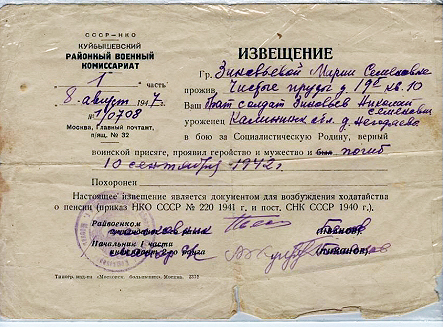 СССР—НКО
КУЙБЫШЕВСКИЙ
РАЙОННЫЙ ВОЕННЫЙ
КОМИССАРИАТ
1 часть
8 август 1947 г.
№ 1/0708
Москва, Главный почтамт,
п/ящ. № 32
ИЗВЕЩЕНИЕ
Гр. Зиновьевой Марии Семеновне
прожив. Чистые пруды д. 19а кв. 10
Ваш брат солдат Зиновьев Николай
Семенович
уроженец Калининск обл. д.
в бою за Социалистическую Родину, верный
воинской присяге, проявил геройство и мужество и был погиб
10 сентября 1942 г.
Похоронен
Настоящее извещение является документом для возбуждения ходатайства
о пенсии (приказ НКО СССР № 220 1941 г. и пост. СНК СССР 1940 г.).
Райвоенком
Начальник 1 части
Типогр. изд-ва «Московск. большевик», Москва.